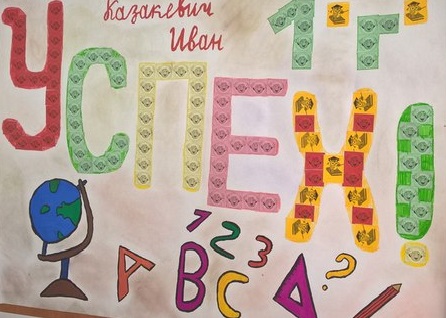 Казакевич
Иван
1 "г"
УСПЕХ!
1 2 3
А В С Д ?